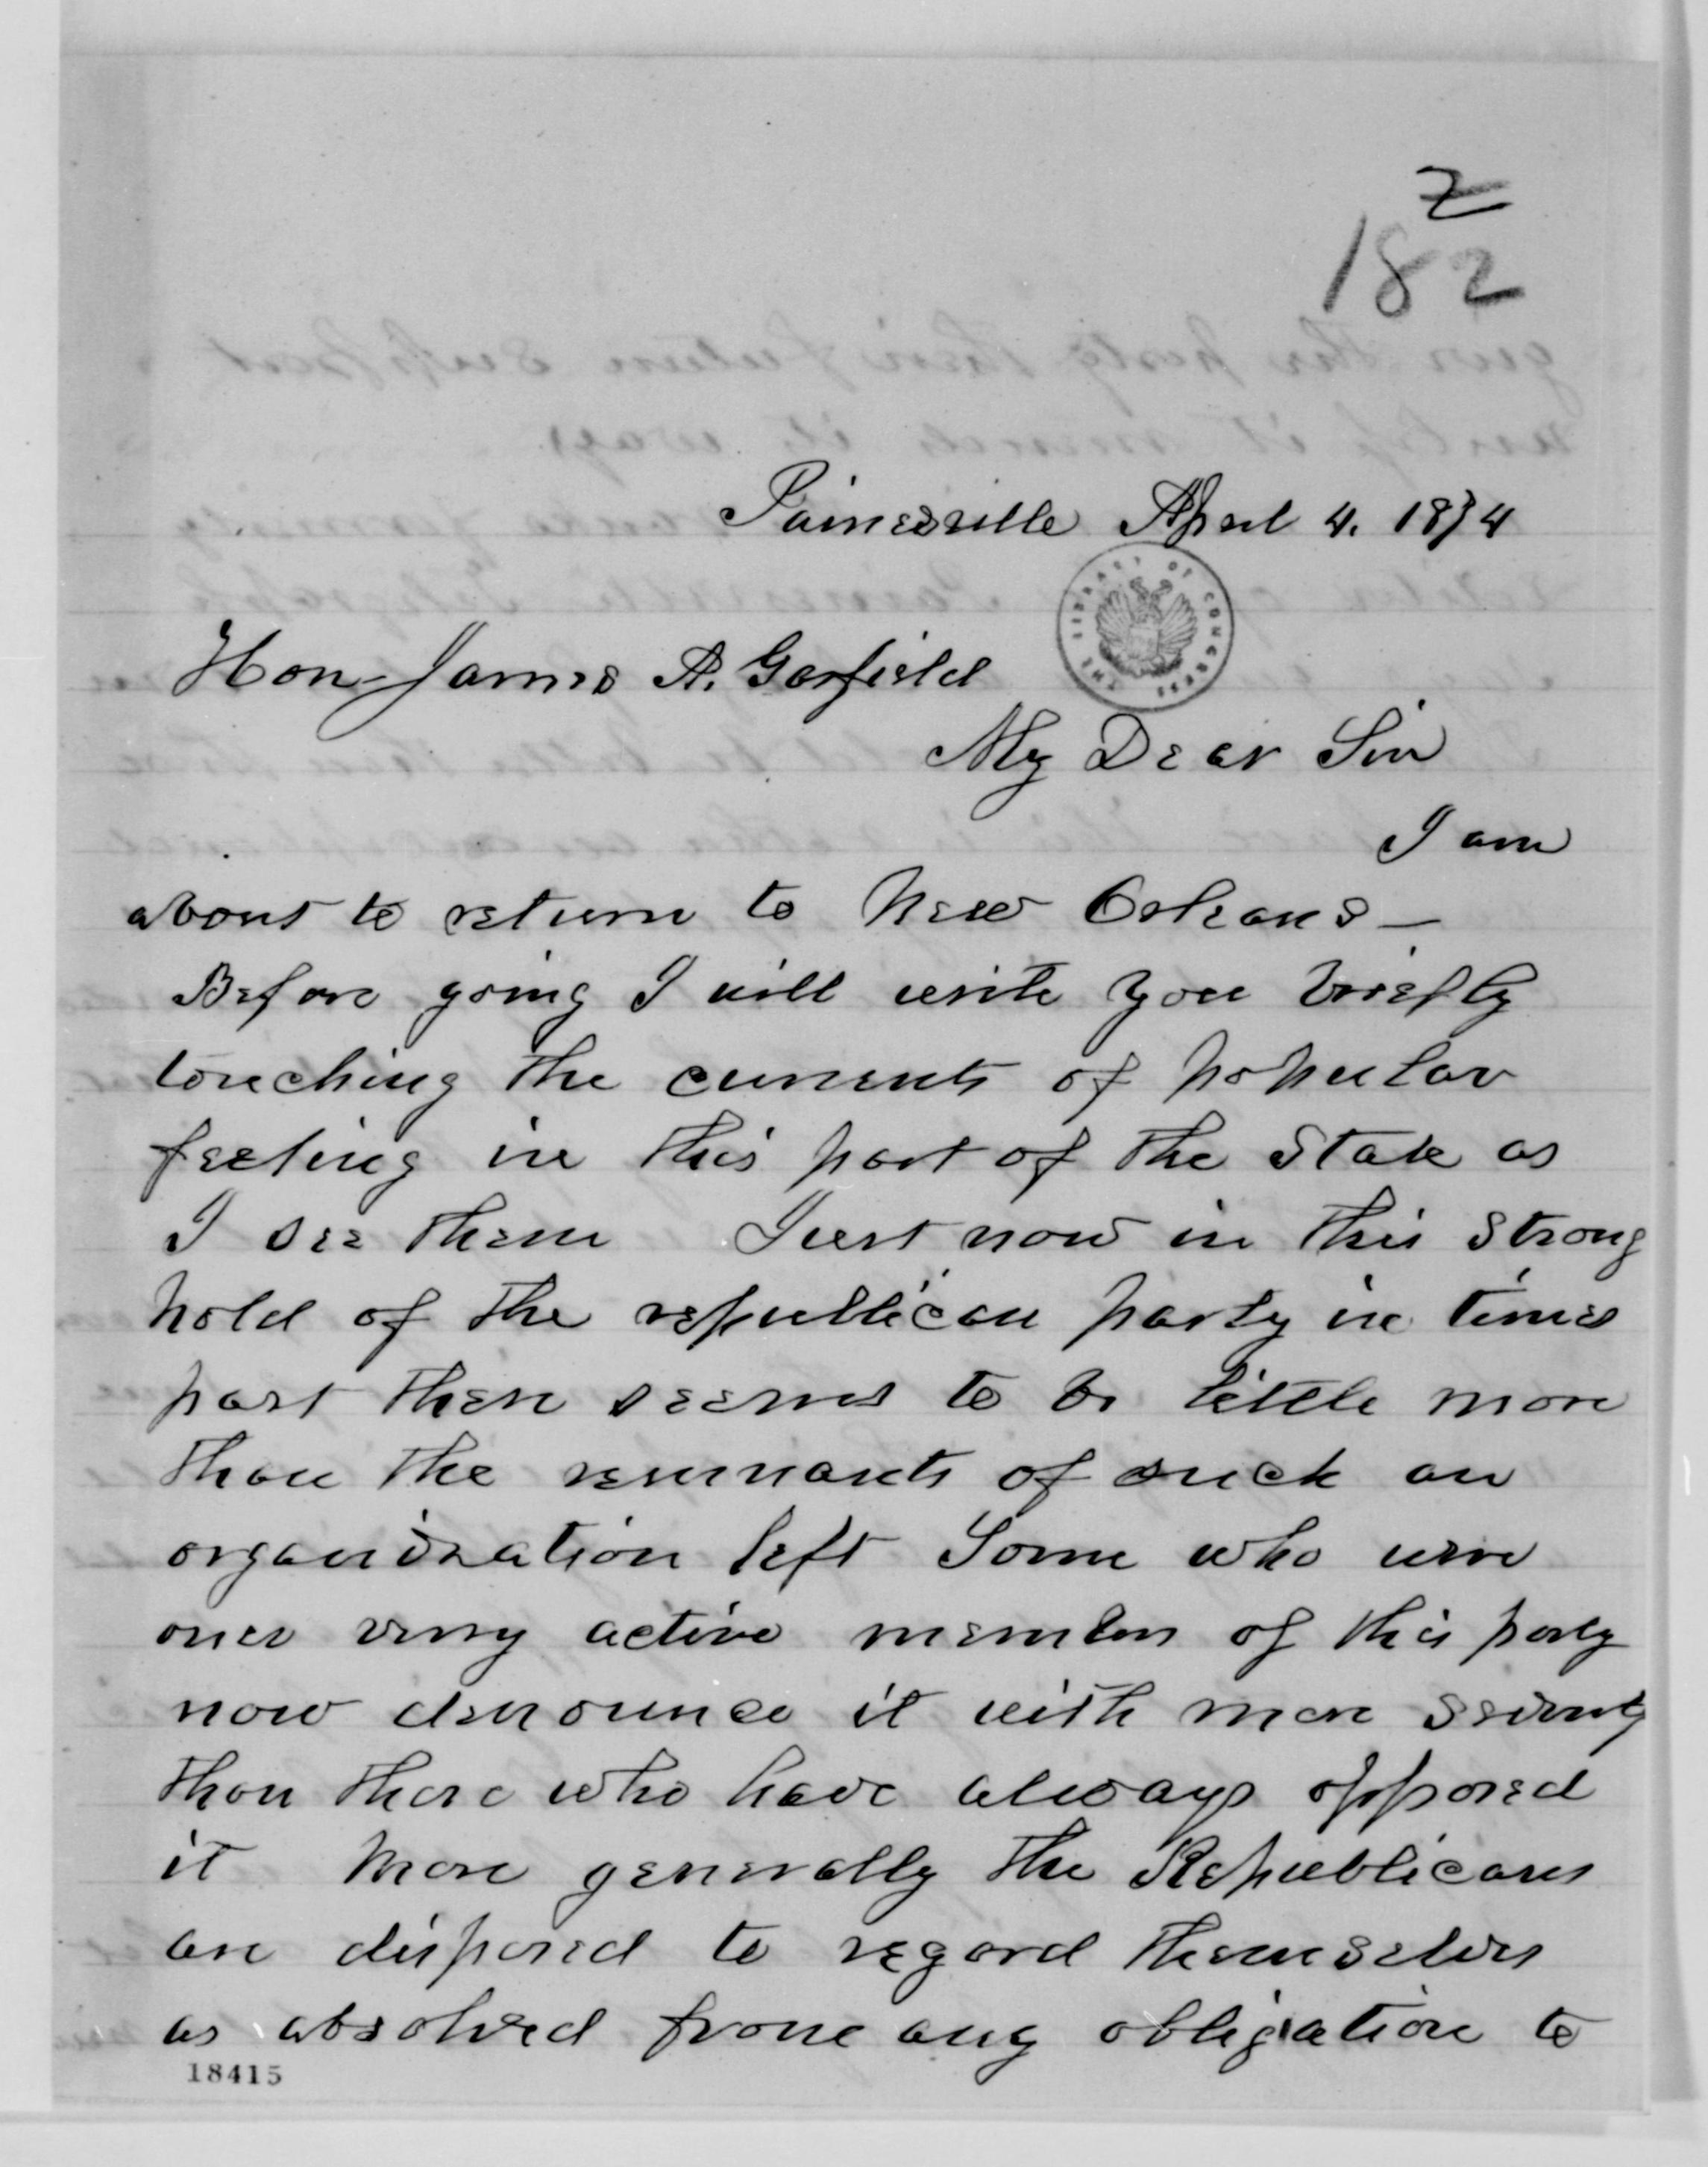 Z
182
Painesville April 4. 1874
THE LIBRARY OF CONGRESS
Hon James A. Garfield
My Dear Sir
I am
about to return to New Orleans —
Before going I will write you briefly
touching the currents of popular
feeling in this part of the State as
I see them Just now in this strong
hold of the republican party in times
past there seems to be little more
than the remnants of such an
organization left Some who were
once very active members of this party
now denounce it with more severity
than those who have always opposed
it More generally the Republicans
are disposed to regard themselves
as absolved from any obligation to
18415